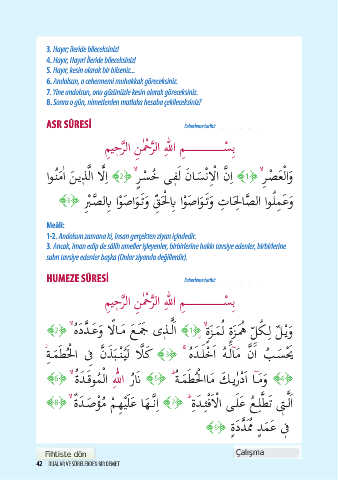 3. Hayır; ileride bileceksiniz!
4. Hayır, Hayır! İleride bileceksiniz!
5. Hayır, kesin olarak bir bilseniz...
6. Andolsun, o cehennemi muhakkak göreceksiniz.
7. Yine andolsun, onu gözünüzle kesin olarak göreceksiniz.
8. Sonra o gün, nimetlerden mutlaka hesaba çekileceksiniz?
ASR SÛRESİ
بِسْــــــــــمِ اللهِ الرَّحْمٰنِ الرَّحِيمِ
وَالْعَصْرِۙ ﴿1﴾ اِنَّ الْاِنْسَانَ لَفِى خُسْرٍۙ ﴿2﴾ اِلَّا الَّذِينَ اٰمَنُوا
وَعَمِلُوا الصَّالِحَاتِ وَتَوَاصَوْا بِالْحَقِّ وَتَوَاصَوْا بِالصَّبْرِ ﴿3﴾
Meâli:
1-2. Andolsun zamana ki, insan gerçekten ziyan içindedir.
3. Ancak, iman edip de sâlih ameller işleyenler, birbirlerine hakkı tavsiye edenler, birbirlerine
sabrı tavsiye edenler başka (Onlar ziyanda değillerdir).
HUMEZE SÛRESİ
بِسْــــــــــمِ اللهِ الرَّحْمٰنِ الرَّحِيمِ
وَيْلٌ لِكُلِّ هُمَزَةٍ لُمَزَةٍۙ ﴿1﴾ اَلَّذِى جَمَعَ مَالًا وَعَدَّدَهُۙ ﴿2﴾
يَحْسَبُ اَنَّ مَالَهُٓ اَخْلَدَهُۚ ﴿3﴾ كَلَّا لَيُنْبَذَنَّ فِى الْحُطَمَةِۘ
﴿4﴾ وَمَٓا اَدْرٰيكَ مَاالْحُطَمَةُۜ ﴿5﴾ نَارُ اللهِ الْمُوقَدَةُۙ ﴿6﴾
اَلَّتِى تَطَّلِعُ عَلَى الْاَفْئِدَةِۜ ﴿7﴾ اِنَّهَا عَلَيْهِمْ مُؤْصَدَةٌۙ ﴿8﴾
فِى عَمَدٍ مُمَدَّدَةٍ ﴿9﴾
Fihtiste dön
Çalışma
42